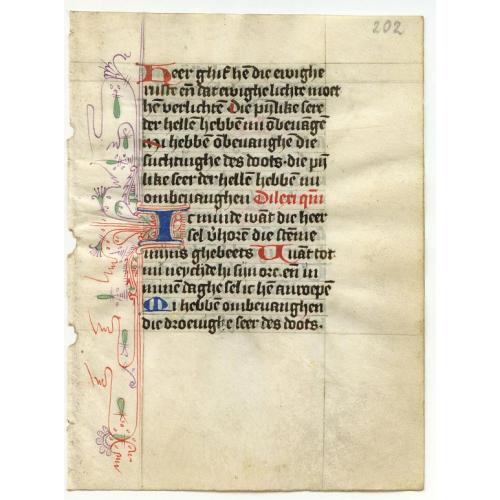 202
Heer ghif hē die ewighe
ruste eñ dat ewighe lichte moet
hē verlichtē Die pijnlike sere
der hellē hebbē mi ōbevagē
Mi hebbē ōbevanghē die
suchtinghe des doots · die pijn
like seer der hellē hebbē mi
ombevaughen Dilexi qm̄
Ic minde wāt die heer
sel v̄horē die stēme
mijns ghebeets Wāt tot
mi neychde hi sijn ore eñ in
minen daghe sel ic hē anroepen
Mi hebbē ombevanghen
die droevighe seer des doots ·